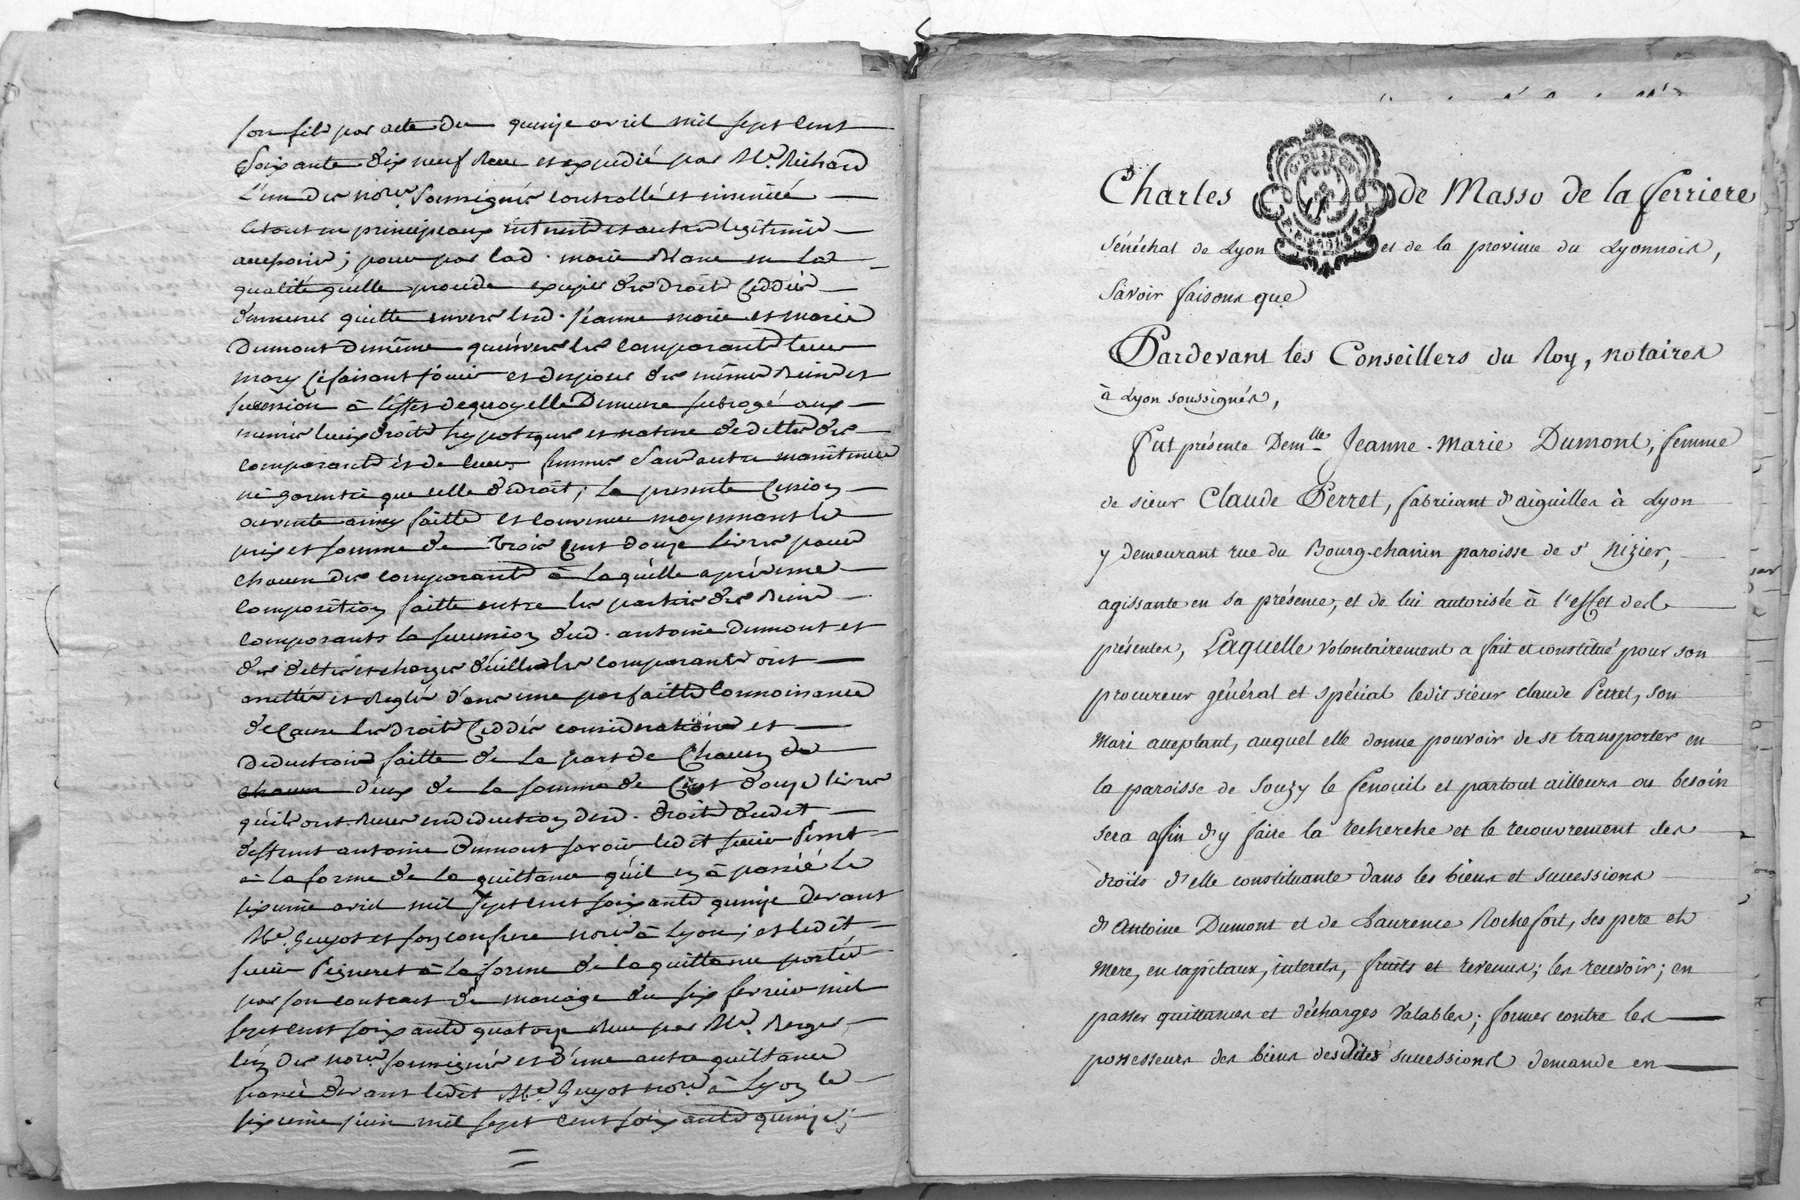 son fils par acte du quinze avril mil sept cent
soixante dix neuf Receu et expedié par Me. Richard
L'un des nores. soussignés controllé et insinué
le tout en principeaux interets et autres legitimes
accessoires; pour par lad. marie
qualité quelle procede exciper des droits ceddés
demeurer quitte envers lesd. jeanne marie et marie
Dumont de même qu'envers les comparants leur
mary ce faisant jouir et disposer des mêmes Biens et
succession à l'effet de quoy elle Demeure subrogé aux
memes lieux droits hypoteques et nature de dettes des
comparants et de leurs femmes sans autre maintenue
ni garentie que celle de droit; la presente Cession
ou vente ainsy faitte et convenue moyennant le
prix et somme de trois cent douze livres pour
chacun des comparants à laquelle après une
composition faitte entre les parties des Biens
composants la succession dud. antoine Dumont et
des dettes et charges d'icelle les comparants ont
arretté et Reglé dans une parfaitte connoissance
de Cause les droits Ceddés considerations et
Deductions faitte de la part de Chacun de
chacun d'eux de la somme de Cent douze livres
qu'ils ont Receu en deduction desd. droits dudit
deffunt antoine Dumont savoir ledit sieur Perret
à la forme de la quittance qu'il en à passée le
sixieme avril mil sept cent soixante quinze devant
Me. Guyot et son confrere nores à Lyon; et ledit
sieur Peigneret à la forme de la quittance portée
par son contract de mariage du six fevrier mil
sept cent soixante quatorze Receu par Me. Berger
l'un des nores soussignés et d'une autre quittance
passée devant ledit Me. Guyot nore à Lyon le
sixieme juin mil sept cent soixante quinze;
Charles de Masso de la ferriere
Sénéchal de Lyon et de la province du Lyonnois,
Savoir faisons que
Pardevant les Conseillers du Roy, notaires
à Lyon soussignés,
Fut présente Demlle Jeanne-Marie Dumont, femme
de sieur Claude Perret, fabricant d'aiguilles à Lyon
y demeurant rue du Bourg-chanin paroisse de St nizier,
agissante en sa présence, et de lui autorisée à l'effet des
présentes, Laquelle volontairement a fait et constitué pour son
procureur général et spécial ledit sieur claude Perret, son
Mari acceptant, auquel elle donne pouvoir de se transporter en
la paroisse de Souzy le fenouil et partout ailleurs ou besoin
sera afin d'y faire la recherche et le recouvrement des
droits d'elle constituante dans les biens et successions
d'Antoine Dumont et de Laurence Rochefort, ses pere et
mere, en capitaux, interets, fruits et revenus; les recevoir; en
passer quittances et décharges valables; former contre les
possesseurs des biens desdites successions demande en